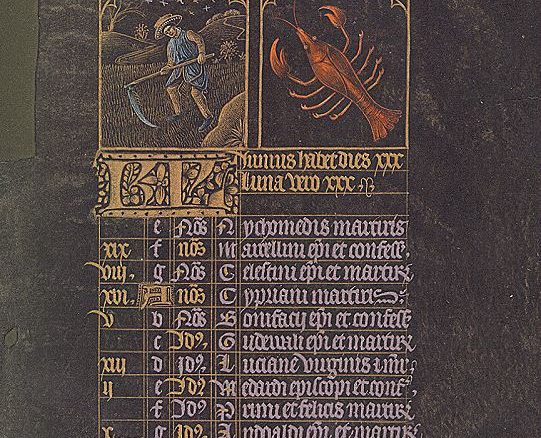 KL Iunius habet dies xxx
Luna vero xxx
e Nos Nychomedis martiris
xix f nos Marcellini epi et confess
viij, g Nos Celestini epi et martir
xvi, A nos Cypriani martiris
v b Nos Bonifacij epi et confess
c Id9, Gudewali epi et martir
xiij d Id9, Luciane virginis i mr
ij e Id9 Medardi episcopi et conf
f Id9 Primi et felicis martir
x g Id9 epi et martir